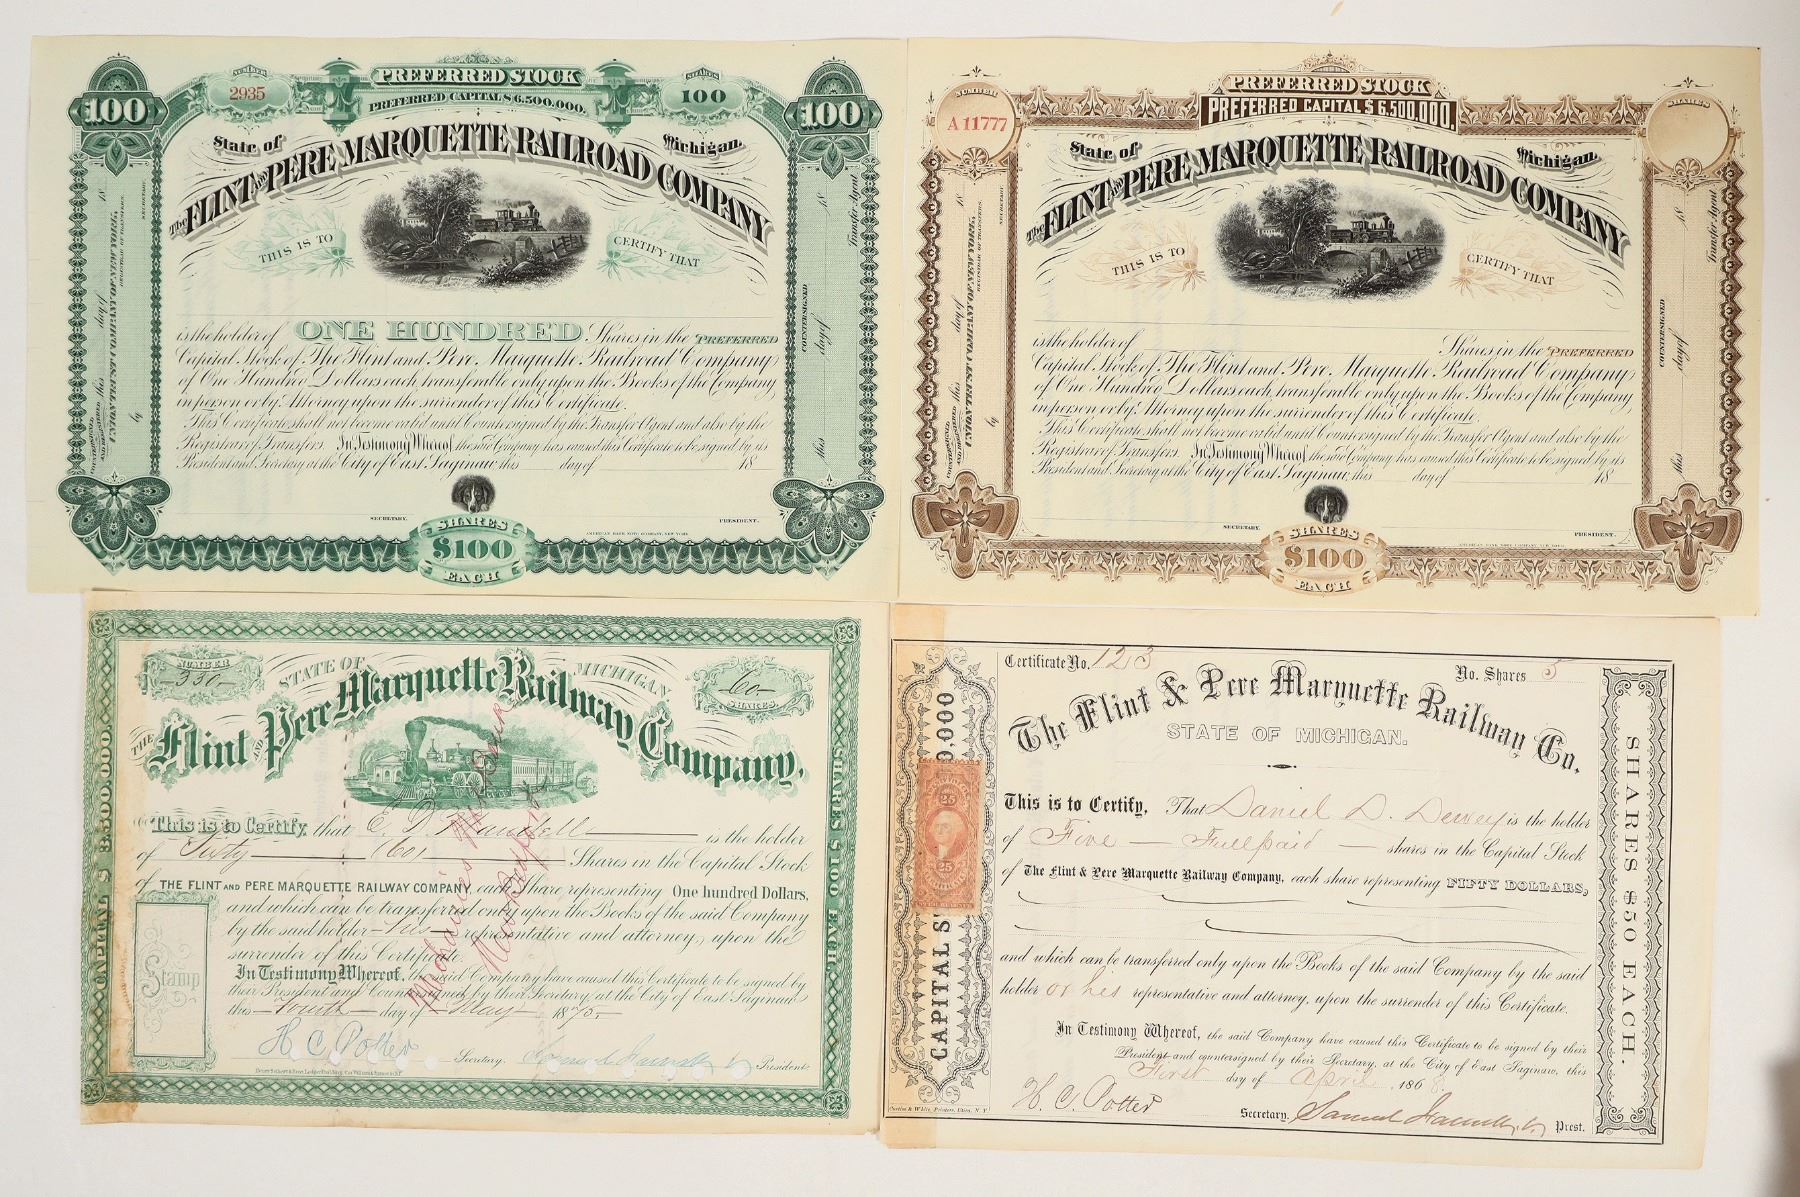 NUMBER
2935
PREFERRED STOCK
PREFERRED CAPITAL $6,500,000.
SHARES
100
100
100
State of
Michigan.
The FLINT AND PERE MARQUETTE RAILROAD COMPANY
THIS IS TO
CERTIFY THAT
is the holder of ONE HUNDRED Shares in the PREFERRED
Capital Stock of The Flint and Pere Marquette Railroad Company
of One Hundred Dollars each, transferable only upon the Books of the Company
in person or by Attorney upon the surrender of this Certificate.
This Certificate shall not become valid until Countersigned by the Transfer Agent and also by the
Registrar of Transfers. In Testimony Whereof, the said Company has caused this Certificate to be signed by its
President and Secretary at the City of East Saginaw, this day of 18
SECRETARY.
PRESIDENT.
SHARES
$100
EACH
AMERICAN BANK NOTE COMPANY, NEW YORK.
COUNTERSIGNED
AND REGISTERED this day of 18
UNION TRUST COMPANY OF NEW YORK,
REGISTRAR OF TRANSFERS.
by
SECRETARY.
COUNTERSIGNED
this day of 18
Transfer Agent
NUMBER
A 11777
PREFERRED STOCK
PREFERRED CAPITAL $6,500,000.
SHARES
State of
Michigan.
The FLINT AND PERE MARQUETTE RAILROAD COMPANY
THIS IS TO
CERTIFY THAT
is the holder of Shares in the PREFERRED
Capital Stock of The Flint and Pere Marquette Railroad Company
of One Hundred Dollars each, transferable only upon the Books of the Company
in person or by Attorney upon the surrender of this Certificate.
This Certificate shall not become valid until Countersigned by the Transfer Agent and also by the
Registrar of Transfers. In Testimony Whereof, the said Company has caused this Certificate to be signed by its
President and Secretary at the City of East Saginaw, this day of 18
SECRETARY.
PRESIDENT.
SHARES
$100
EACH
AMERICAN BANK NOTE COMPANY, NEW YORK.
COUNTERSIGNED
AND REGISTERED this day of 18
UNION TRUST COMPANY OF NEW YORK,
REGISTRAR OF TRANSFERS.
by
SECRETARY.
COUNTERSIGNED
this day of 18
Transfer Agent
NUMBER
330
STATE OF MICHIGAN
60
SHARES
THE Flint AND Pere Marquette Railway Company,
This is to Certify, that E. D. Mandell is the holder
of Sixty (60) Shares in the Capital Stock
of THE FLINT AND PERE MARQUETTE RAILWAY COMPANY, each Share representing One hundred Dollars,
and which can be transferred only upon the Books of the said Company
by the said holder his representative and attorney, upon the
surrender of this Certificate.
In Testimony Whereof, the said Company have caused this Certificate to be signed by
their President and Countersigned by their Secretary, at the City of East Saginaw
this Fourth day of May 1870
H. C. Potter Secretary. President.
Stamp
Mechanics Nat. Bank
New Bedford
CAPITAL $3,300,000.
SHARES $100 EACH.
Certificate No. 123
No. Shares 5
The Flint & Pere Marquette Railway Co.
STATE OF MICHIGAN.
This is to Certify, That Daniel D. Dewey is the holder
of Five Full paid shares in the Capital Stock
of The Flint & Pere Marquette Railway Company, each share representing FIFTY DOLLARS,
and which can be transferred only upon the Books of the said Company by the said
holder or his representative and attorney, upon the surrender of this Certificate.
In Testimony Whereof, the said Company have caused this Certificate to be signed by their
President and countersigned by their Secretary, at the City of East Saginaw, this
First day of April 1868
H. C. Potter Secretary. Pres't.
Curtiss & White, Printers, Utica, N. Y.
CAPITAL S 0,000
25 25
SHARES $50 EACH.